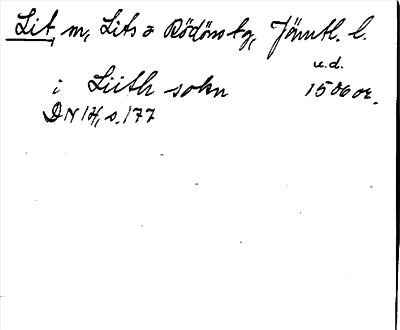 Lit, m, Lits o Rödöns tg, Jämtl. l.
u.d.
i Liith sokn 1506 or.
DN 14, s. 177